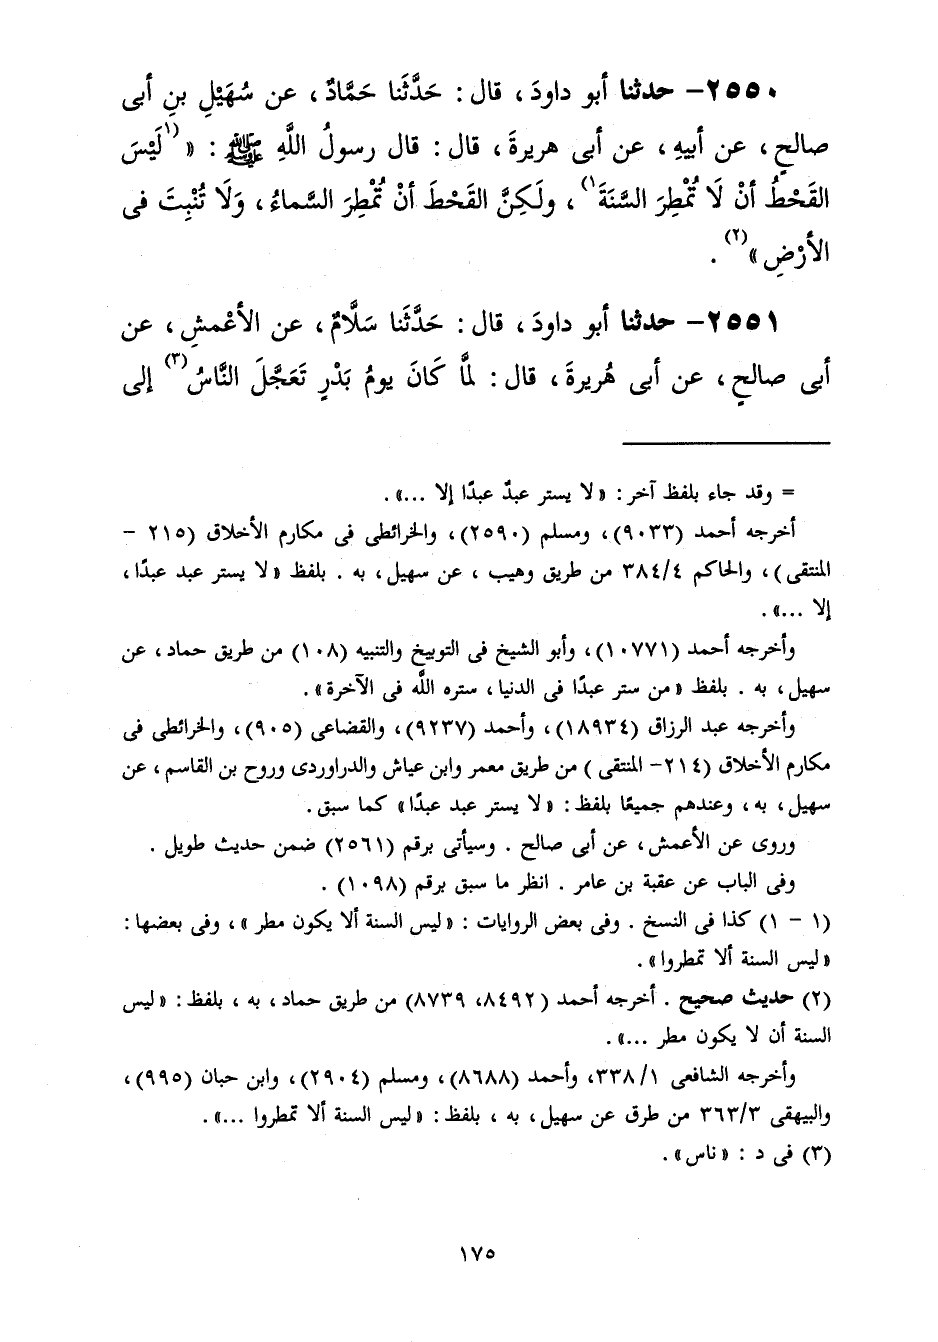 ٢٥٥٠- حدثنا أبو داودَ ، قال : حَدَّثَنا حَمَّادٌ ، عن سُهَيْلِ بنِ أبى
صالحٍ ، عن أبيهِ ، عن أبى هريرةَ ، قال : قال رسولُ اللَّهِ ﷺ : « (١)لَيْسَ
القَحْطُ أنْ لَا تُمْطِرَ السَّنَةَ(١) ، ولَكِنَّ القَحْطَ أنْ تُمْطِرَ السَّماءُ ، وَلَا تُنْبِتَ فى
الأرْضِ »(٢) .
٢٥٥١- حدثنا أبو داودَ ، قال : حَدَّثَنا سَلَّامٌ ، عن الأعْمشِ ، عن
أبى صالحٍ ، عن أبى هُريرةَ ، قال : لمَّا كَانَ يومُ بَدْرٍ تَعَجَّلَ النَّاسُ(٣) إلى
= وقد جاء بلفظ آخر : « لا يستر عبدٌ عبدًا إلا ...» .
أخرجه أحمد (٩٠٣٣) ، ومسلم (٢٥٩٠) ، والخرائطى فى مكارم الأخلاق (٢١٥ -
المنتقى) ، والحاكم ٣٨٤/٤ من طريق وهيب ، عن سهيل ، به . بلفظ « لا يستر عبد عبدًا ،
إلا ...» .
وأخرجه أحمد (١٠٧٧١) ، وأبو الشيخ فى التوبيخ والتنبيه (١٠٨) من طريق حماد ، عن
سهيل ، به . بلفظ « من ستر عبدًا فى الدنيا ، ستره اللَّه فى الآخرة» .
وأخرجه عبد الرزاق (١٨٩٣٤) ، وأحمد (٩٢٣٧) ، والقضاعى (٩٠٥) ، والخرائطى فى
مكارم الأخلاق (٢١٤- المنتقى ) من طريق معمر وابن عياش والدراوردى وروح بن القاسم ، عن
سهيل ، به ، وعندهم جميعًا بلفظ : « لا يستر عبد عبدًا» كما سبق .
وروى عن الأعمش ، عن أبى صالح . وسيأتى برقم (٢٥٦١) ضمن حديث طويل .
وفى الباب عن عقبة بن عامر . انظر ما سبق برقم (١٠٩٨) .
(١ - ١) كذا فى النسخ . وفى بعض الروايات : « ليس السنة ألا يكون مطر » ، وفى بعضها :
« ليس السنة ألا تمطروا» .
(٢) حديث صحيح . أخرجه أحمد (٨٤٩٢، ٨٧٣٩) من طريق حماد ، به ، بلفظ : « ليس
السنة أن لا يكون مطر ...» .
وأخرجه الشافعى ٣٣٨/١، وأحمد (٨٦٨٨) ، ومسلم (٢٩٠٤) ، وابن حبان (٩٩٥) ،
والبيهقى ٣٦٣/٣ من طرق عن سهيل ، به ، بلفظ : « ليس السنة ألا تمطروا ...» .
(٣) فى د : « ناس» .
١٧٥